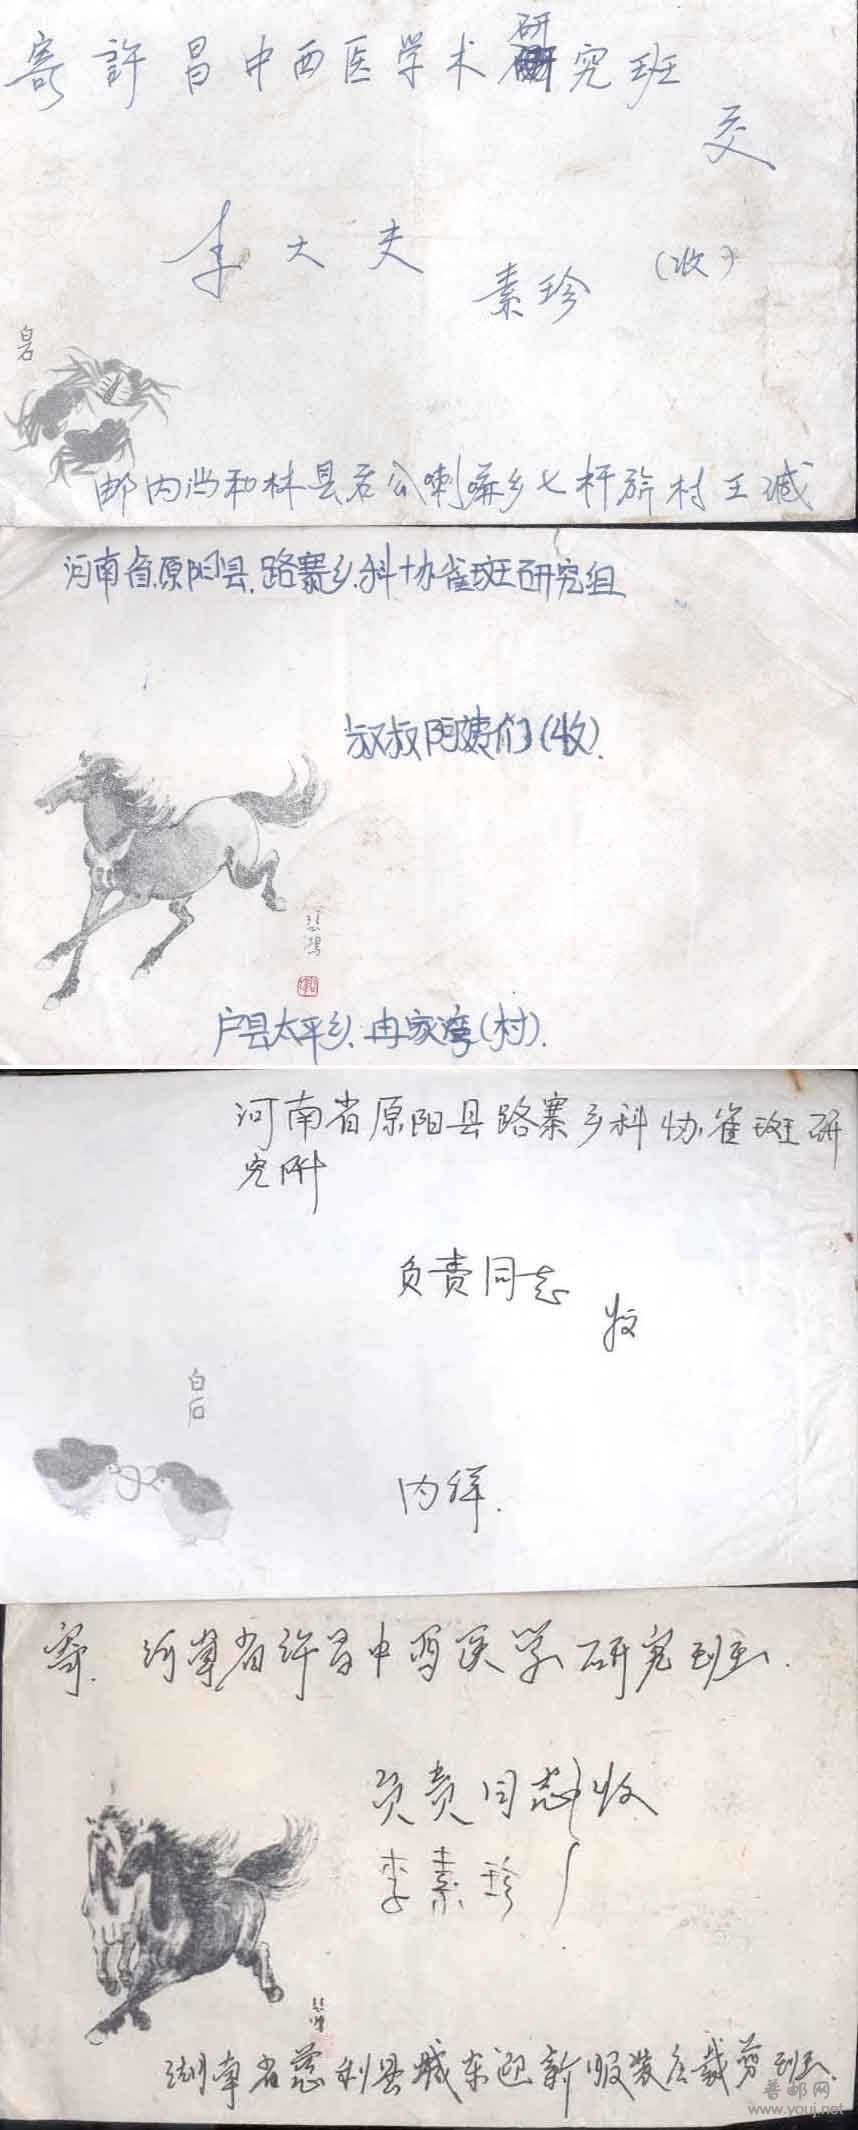 寄許昌中西医学术研究班
交
李大夫
素珍
(收)
白石
邮内当和林县后公喇嘛乡七杆旗村王
河南省.原阳县.路寨乡.科协雀斑研究组
叔叔阿姨们(收).
悲鸿
户县太平乡.冉家湾(村).
河南省原阳县路寨乡科协雀斑研
究所
负责同志
收
白石
内详.
寄.河南省许昌中西医学研究班.
负责同志收
李素珍
悲鸿
湖南省慈利县城东迎新服装店裁剪班.
普邮网
www.youj.net